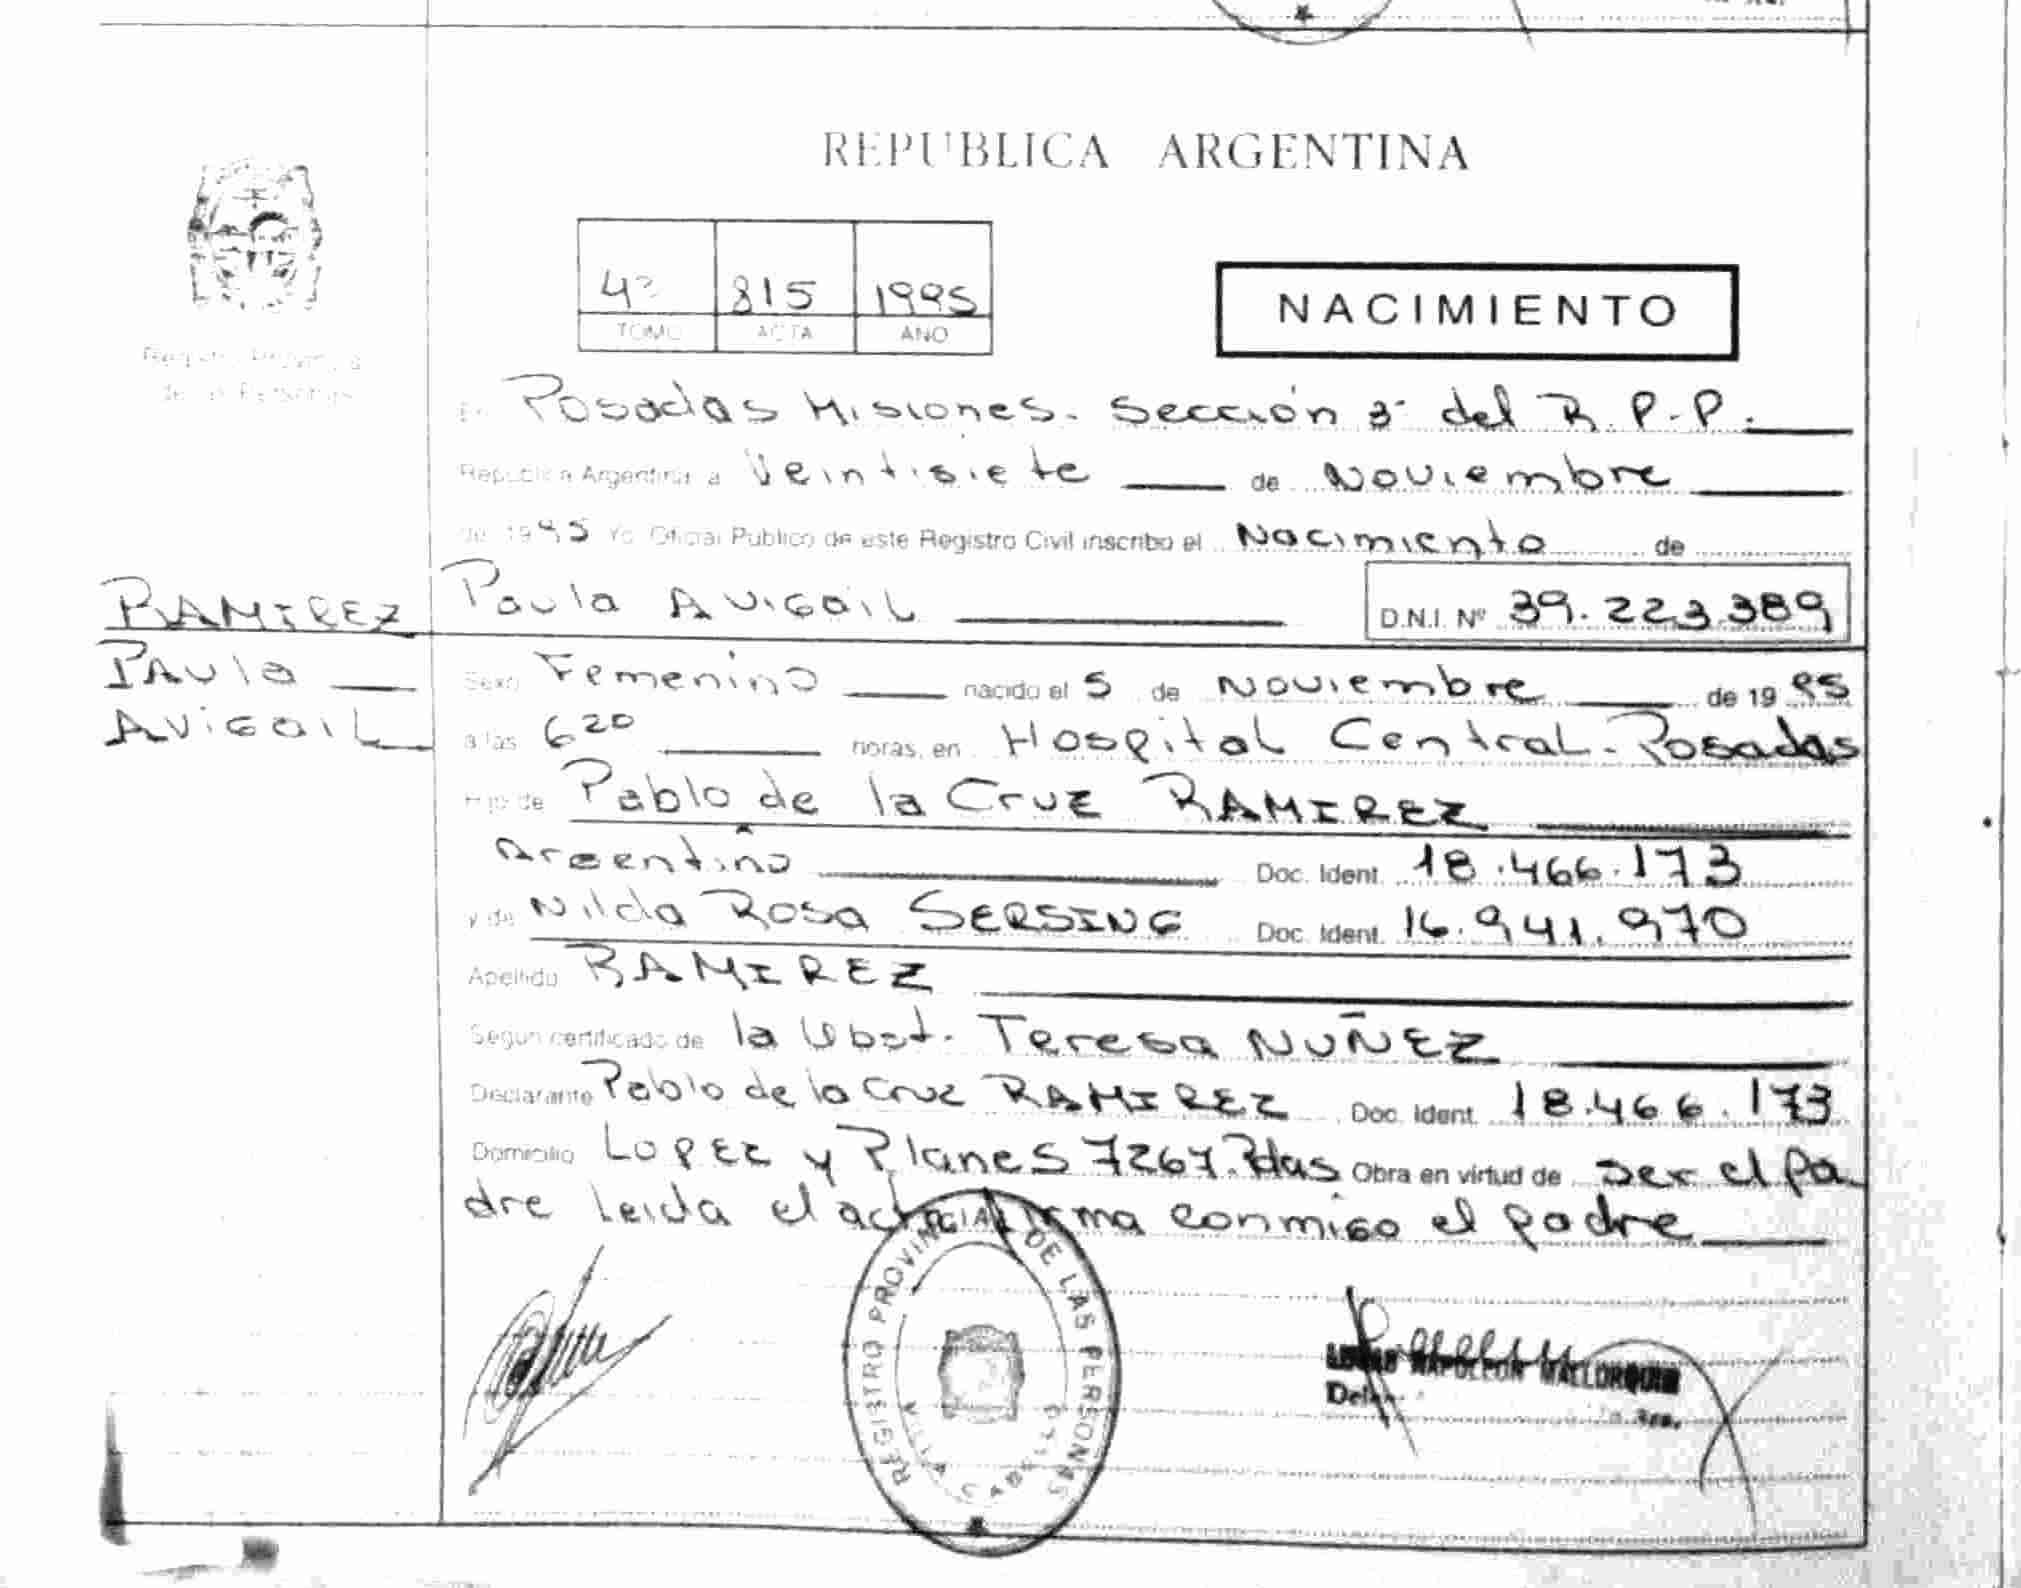 REPUBLICA ARGENTINA
Registro Provincial
de las Personas
4º 815 1995
TOMO ACTA AÑO
NACIMIENTO
En Posadas Misiones. Sección 3ª del R.P.P.
Republica Argentina a Veintisiete de Noviembre
de 1995 Yo Oficial Publico de este Registro Civil inscribo el Nacimiento de
RAMIREZ Paula AVIGAIL D.N.I. Nº 39.223.389
PAula
AVIGAIL
Sexo Femenino nacido el 5 de Noviembre de 1995
a las 6 20 horas, en Hospital Central - Posadas
Hijo de Pablo de la Cruz RAMIREZ
Argentino Doc. Ident. 18.466.173
y de Nilda Rosa SERSING Doc. Ident. 16.941.970
Apellido RAMIREZ
Según certificado de la Obst. Teresa NUÑEZ
Declarante Pablo de la Cruz RAMIREZ Doc. Ident. 18.466.173
Domicilio LOPEZ y Planes 7267. Pdas Obra en virtud de ser el pa
dre Leida el acta firma conmigo el padre
REGISTRO PROVINCIAL DE LAS PERSONAS
VILLA CABELLO
NAPOLEON MALLORQUIN